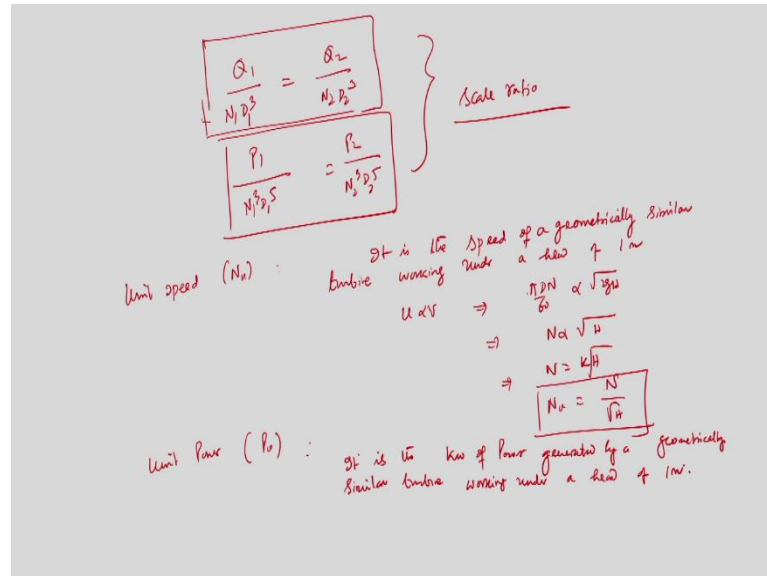 Q₁/N₁D₁³ = Q₂/N₂D₂³
P₁/N₁³D₁⁵ = P₂/N₂³D₂⁵
Scale ratio
Unit speed (Nᵤ) : It is the speed of a geometrically similar
turbine working under a head of 1m
u α V ⇒ πDN/60 α √2gH
⇒ N α √H
⇒ N = K√H
Nᵤ = N/√H
Unit Power (Pᵤ) : It is the kw of Power generated by a geometrically
Similar turbine working under a head of 1m.